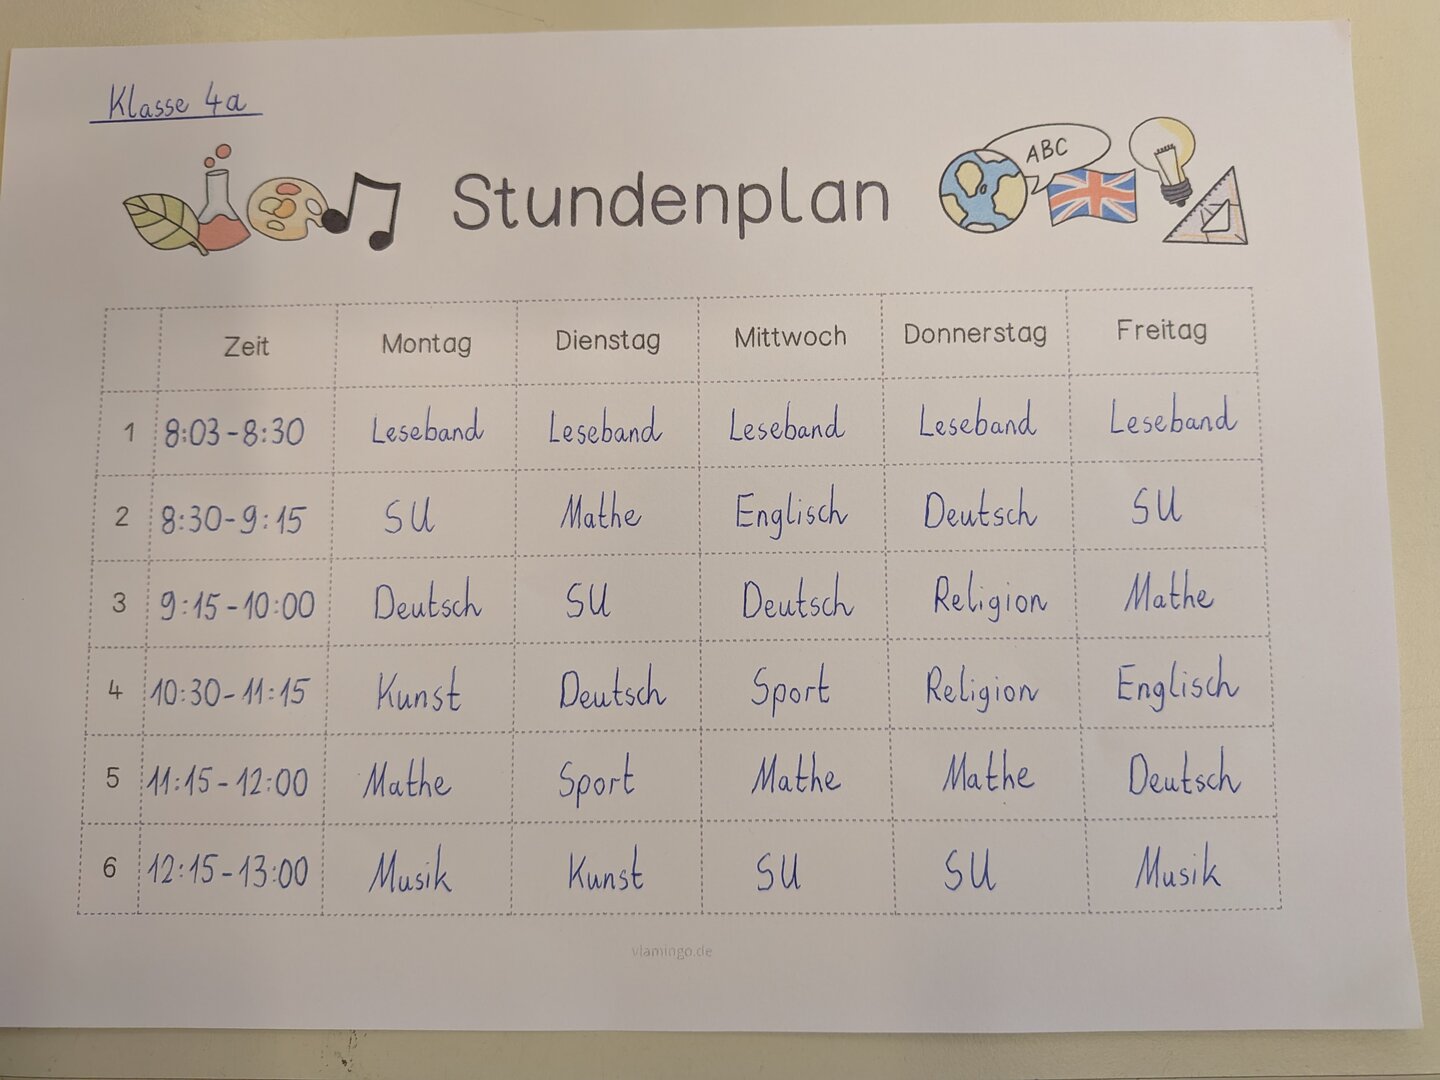 Klasse 4a
ABC
Stundenplan
Zeit Montag Dienstag Mittwoch Donnerstag Freitag
1 8:03-8:30 Leseband Leseband Leseband Leseband Leseband
2 8:30-9:15 SU Mathe Englisch Deutsch SU
3 9:15-10:00 Deutsch SU Deutsch Religion Mathe
4 10:30-11:15 Kunst Deutsch Sport Religion Englisch
5 11:15-12:00 Mathe Sport Mathe Mathe Deutsch
6 12:15-13:00 Musik Kunst SU SU Musik
vlamingo.de